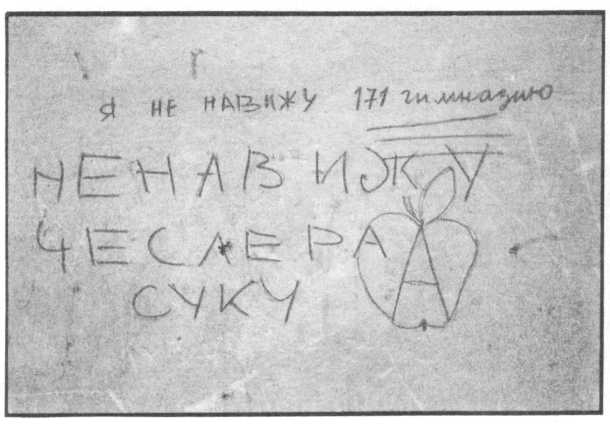 я не навижу 171 гимназию
НЕНАВИЖУ
ЧЕСЛЕРА
СУКУ
А